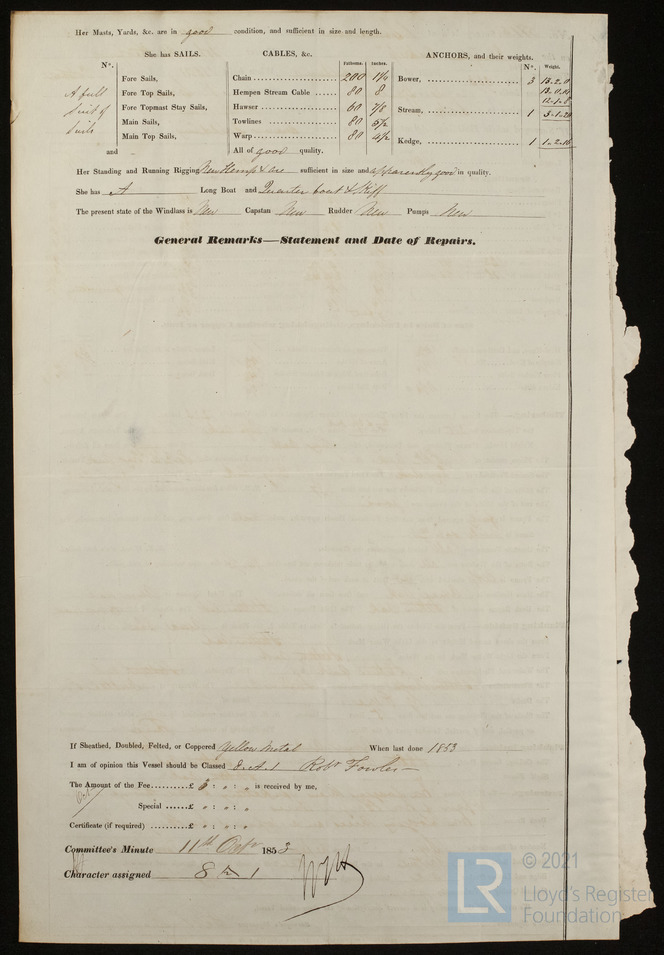 Her Masts, Yards, &c. are in good condition, and sufficient in size and length.
She has SAILS. CABLES, &c. ANCHORS, and their weights.
Nº. Fathoms. Inches. Nº. Weight.
Fore Sails, Chain 200 1¼ Bower, 3 13.2.0
A full Fore Top Sails, Hempen Stream Cable 80 8
suit of Fore Topmast Stay Sails, Hawser 60 7/8 Stream, 1
Sails Main Sails, Towlines 80 5½
Main Top Sails, Warp 80 4½ Kedge, 1
and All of good quality.
Her Standing and Running Rigging New Hemp & are sufficient in size and apparently good in quality.
She has A Long Boat and Quarter boat & Skiff
The present state of the Windlass is New Capstan New Rudder New Pumps New
General Remarks—Statement and Date of Repairs.
If Sheathed, Doubled, Felted, or Coppered Yellow Metal When last done 1853
I am of opinion this Vessel should be Classed 8. A. 1 Robt Fowler
The Amount of the Fee £ 5 : 0 : 0 is received by me,
Special £ 0 : 0 : 0
Certificate (if required) £ 0 : 0 : 0
Committee's Minute 11th Octr 1853
Character assigned 8 A 1
LR
© 2021
Lloyd's Register
Foundation